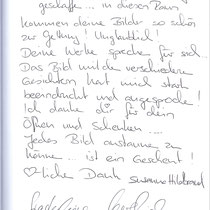 geschafft ... in diesen Raum
kommen deine Bilder so schön
zur Geltung! Unglaublich!
Deine Werke spreche für sich
Das Bild mit den verschiedene
Gesichtern hat mich stark
beeindruckt und angesprochen!
Ich danke dir für dein
Öffnen und Schenken ....
Jedes Bild anstaunen zu
können ... ist ein Geschenk!
♡liche Dank Susanne